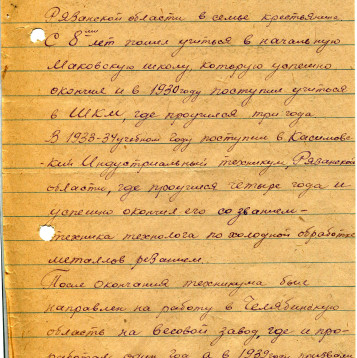 Рязанской области в семье крестьянина
С 8ми лет пошел учиться в начальную
Маковскую школу, которую успешно
окончил и в 1930 году поступил учиться
в ШКМ, где проучился три года
В 1933-34 учебном году поступил в Касимовс-
-кий Индустриальный техникум, Рязанской
области, где проучился четыре года и
успешно окончил его со званием-
техника технолога по холодной обработке
металлов резанием.
После окончания техникума был
направлен на работу в Челябинскую
область на весовой завод, где и про-
работал один год а в 1939 году